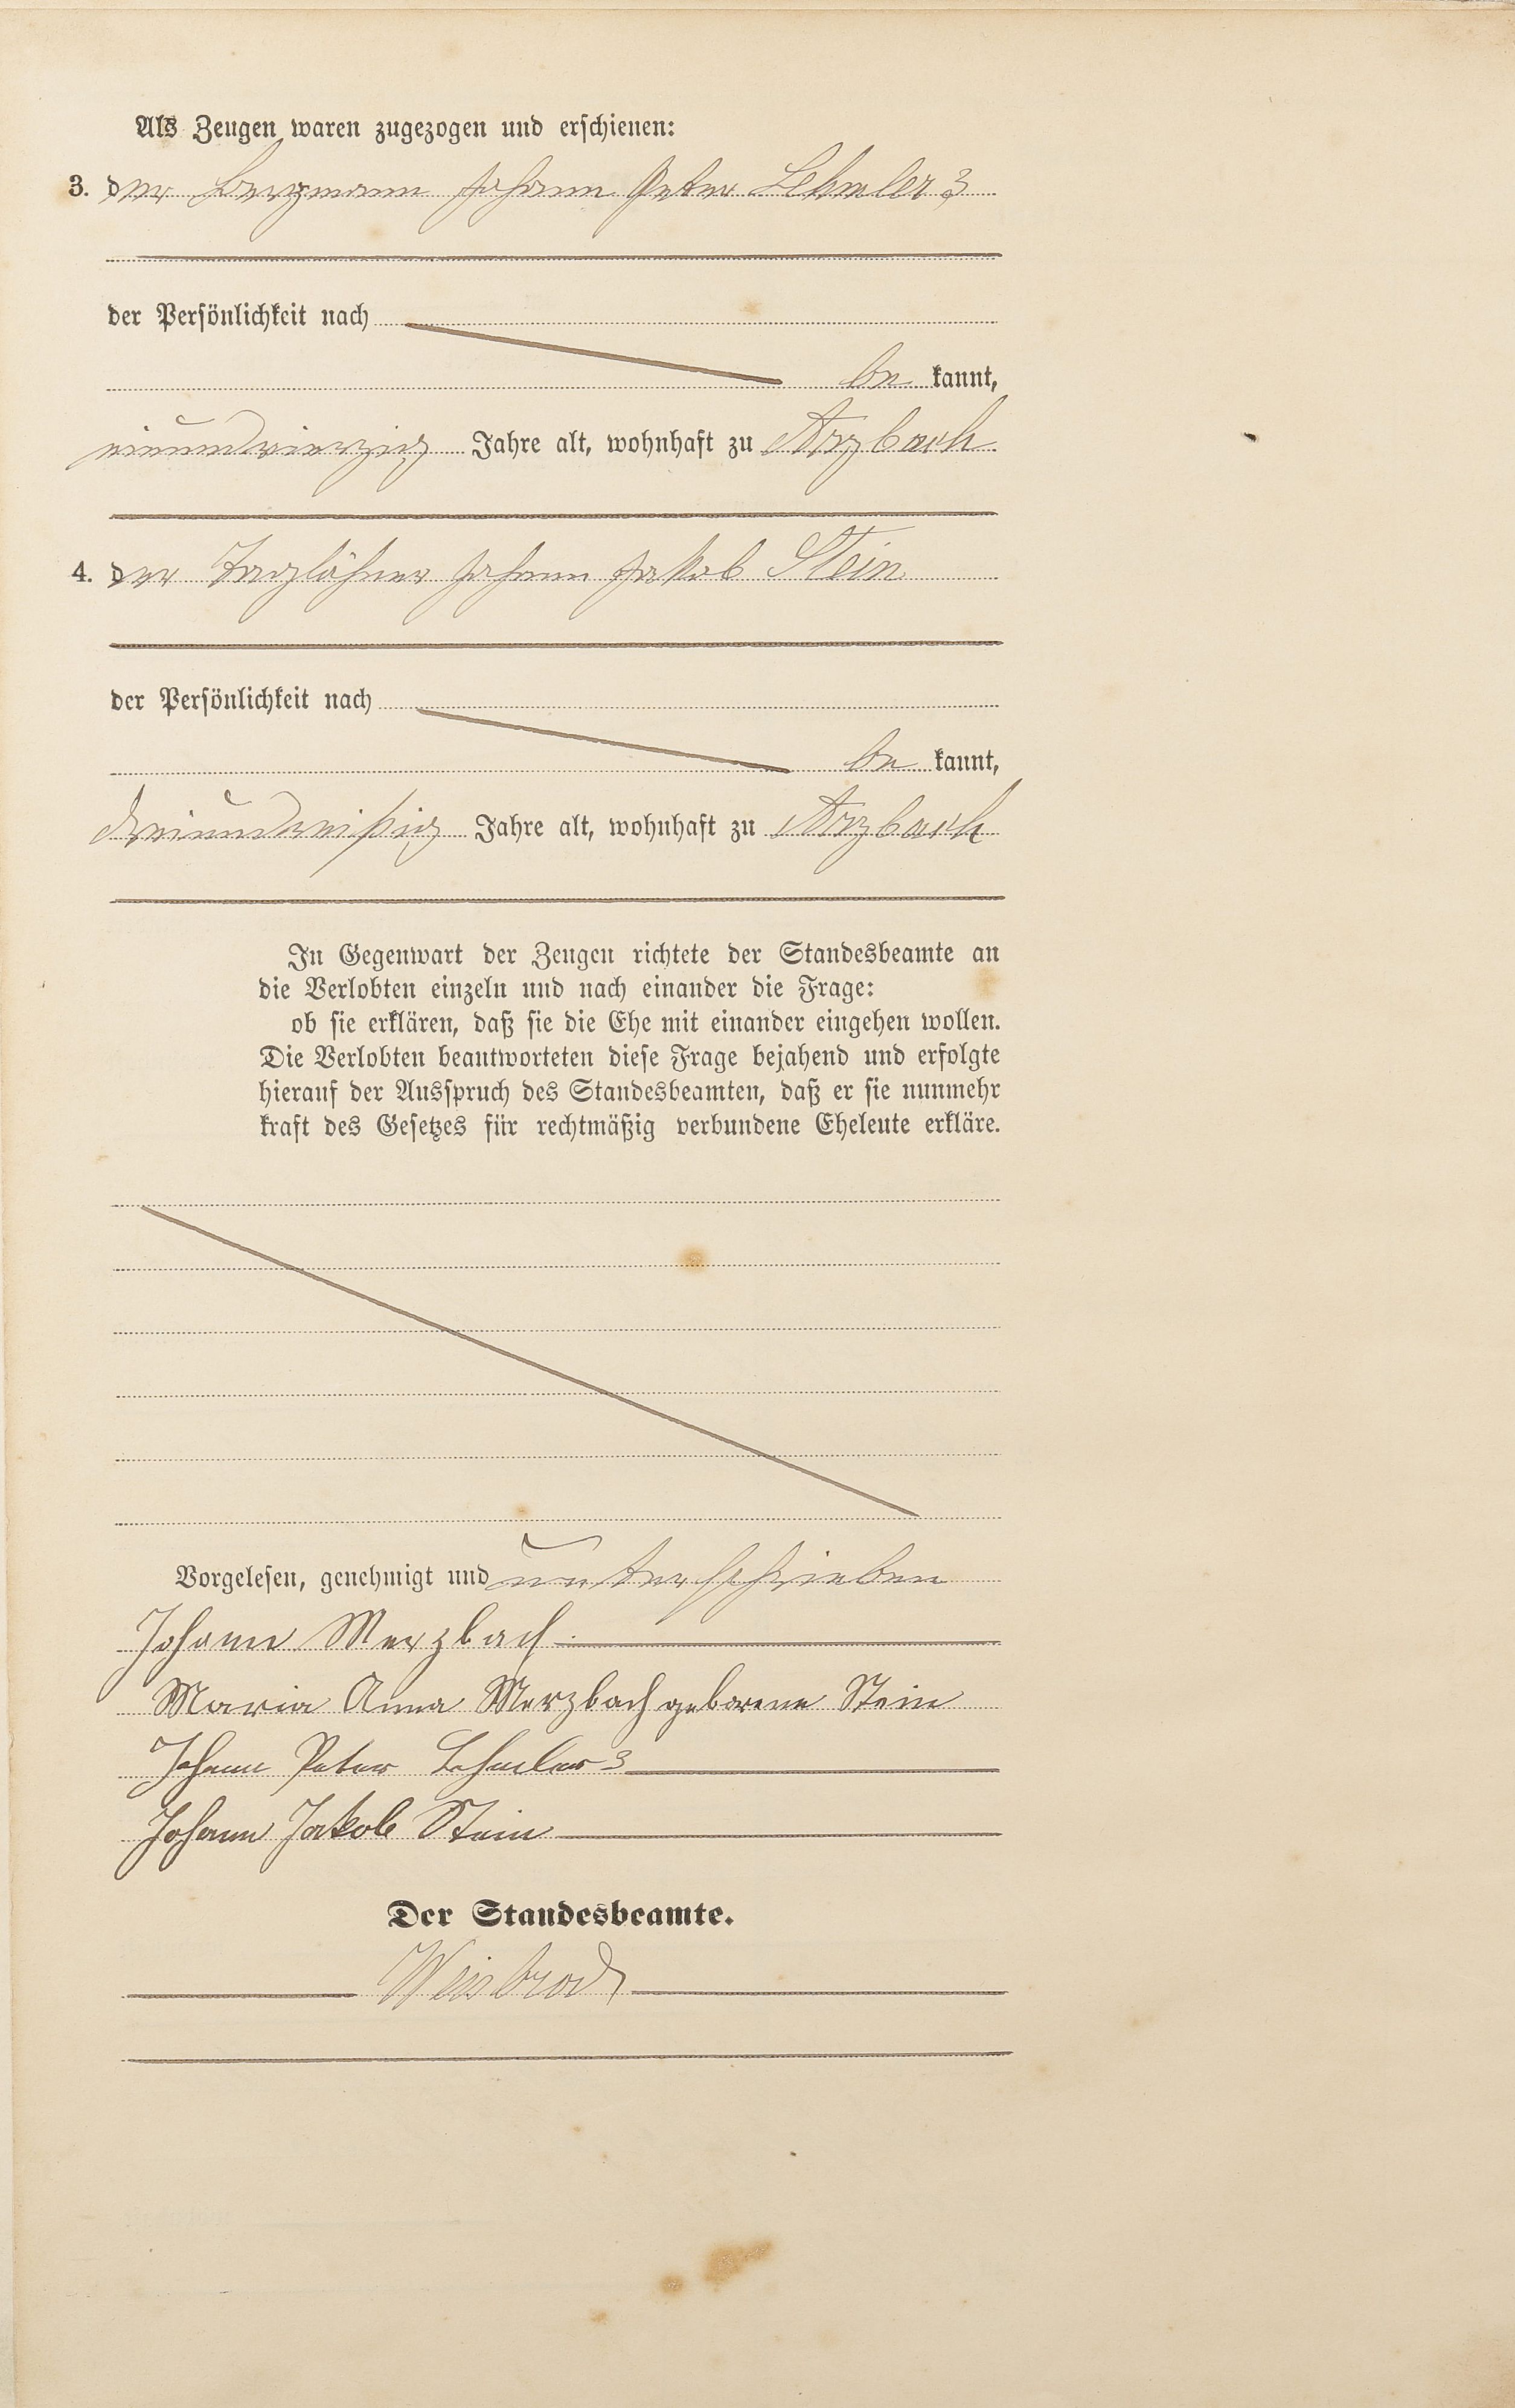 Als Zeugen waren zugezogen und erschienen:
3. der Bergmann Johann Peter Lehmler 3
der Persönlichkeit nach
be kannt,
neunundvierzig Jahre alt, wohnhaft zu Arzbach
4. der Taglöhner Johann Jakob Stein
der Persönlichkeit nach
be kannt,
dreiunddreißig Jahre alt, wohnhaft zu Arzbach
In Gegenwart der Zeugen richtete der Standesbeamte an
die Verlobten einzeln und nach einander die Frage:
ob sie erklären, daß sie die Ehe mit einander eingehen wollen.
Die Verlobten beantworteten diese Frage bejahend und erfolgte
hierauf der Ausspruch des Standesbeamten, daß er sie nunmehr
kraft des Gesetzes für rechtmäßig verbundene Eheleute erkläre.
Vorgelesen, genehmigt und unterschrieben
Johann Merzbach
Maria Anna Merzbach geborene Stein
Johann Peter Lehmler 3
Johann Jakob Stein
Der Standesbeamte.
Weisbrod